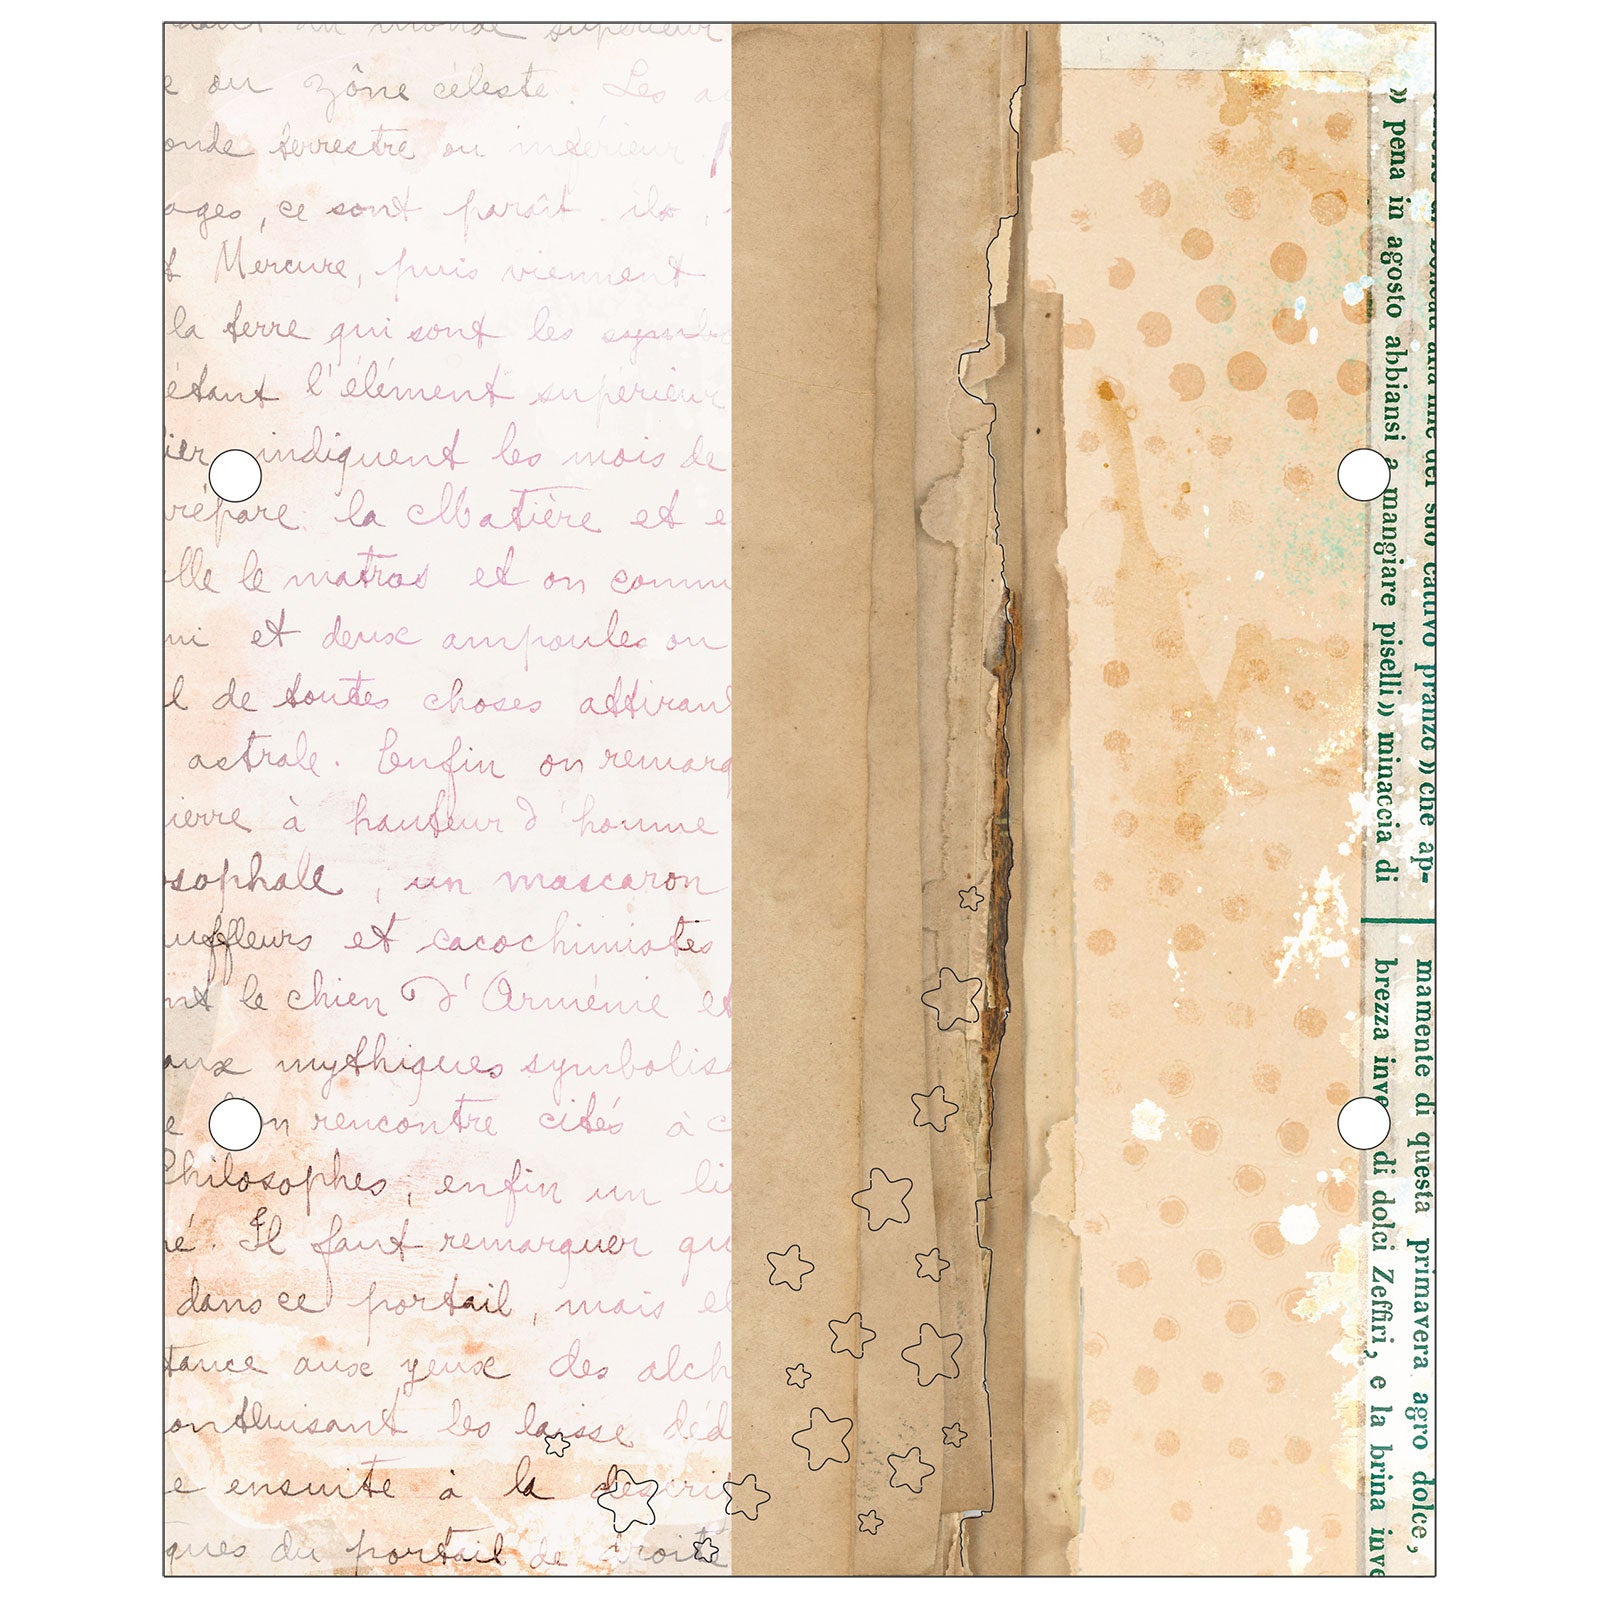 dant du monde supérieur
e ou zône céleste. Les
onde terrestre ou inférieur
ages, ce sont paraît-ils,
t Mercure, puis viennent
la terre qui sont les symbo
étant l'élément supérieur
ier indiquent les mois de
répare la Matière et e
lle le matras et on comm
ni et deux ampoules ou
l de toutes choses attiran
astrale. Enfin on remarq
ierre à hauteur d'homme
sophale, un mascaron
uffleurs et cacochimistes
nt le chien d'Arménie et
aux mythiques symbolis
e on rencontre cités à c
Philosophes, enfin un li
né. Il faut remarquer qu
dans ce portail, mais el
tance aux yeux des alch
ontluisant les laisse déd
e ensuite à la descri
ques du portail de droite
alla fine del suo cattivo pranzo » che ap-
» pena in agosto abbiansi a mangiare piselli » minaccia di
mamente di questa primavera agro dolce,
brezza inve di dolci Zeffiri, e la brina inve